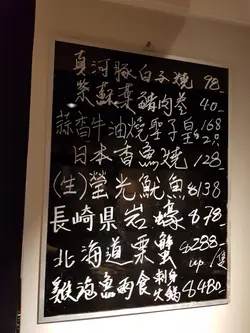 真河豚白子燒 98.-
紫蘇葉豬肉卷 40.-
蒜香牛油燒聖子皇 $168
日本香魚燒 128.-
(生)螢光魷魚 $138
長崎県岩蠔 $78.-
北海道栗蟹 $288.- up/隻
雞泡魚兩食 刺身 火鍋 $480.-